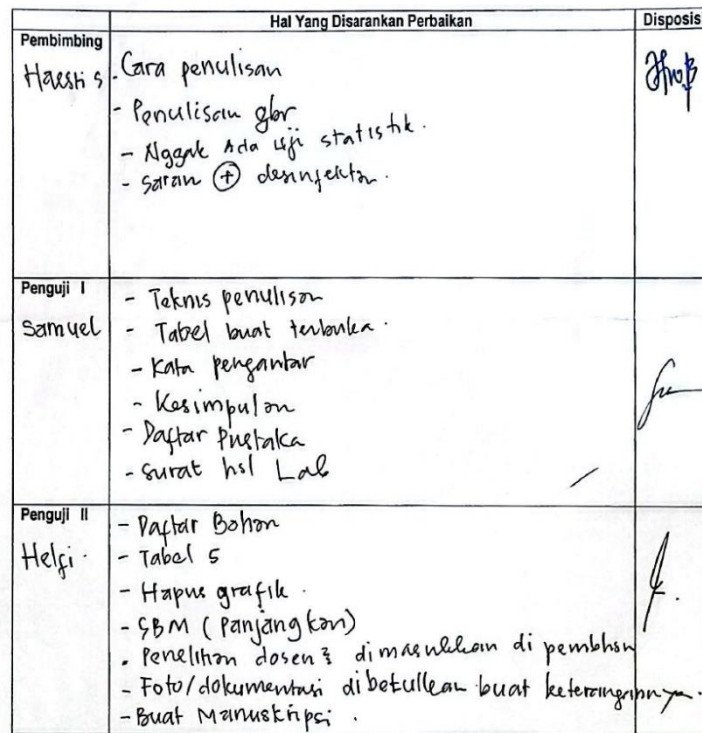 Hal Yang Disarankan Perbaikan
Disposis
Pembimbing
- Cara penulisan
- Penulisan gbr
- Nggak Ada uji statistik.
- saran + desinfektan.
Penguji I
Samuel
- Teknis penulisan
- Tabel buat terbuka.
- Kata pengantar
- Kesimpulan
- Daftar Pustaka
- surat hsl Lab
Penguji II
Helfi.
- Daftar Bahan
- Tabel 5
- Hapus grafik.
- SBM (Panjangkan)
- Penelitian dosen2 dimasukkan di pembhsn
- Foto/dokumentasi dibetulkan buat keterangannya.
- Buat Manuskripsi.